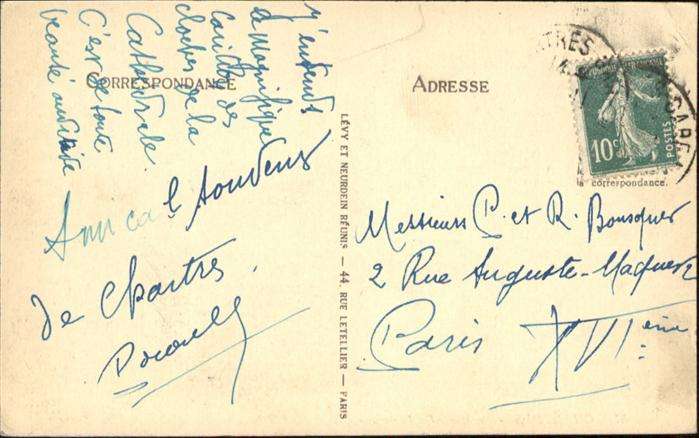 CORRESPONDANCE
ADRESSE
J'entends
le magnifique
carillon des
cloches de la
Cathédrale.
C'est de toute
beauté
Amical souvenir
de Chartres.
LÉVY ET NEURDEIN RÉUNIS — 44, RUE LETELLIER — PARIS
GARE
10c
POSTES
la correspondance.
Messieurs P. et R. Bousquet
2 Rue Auguste-Maquet
Paris XVIème